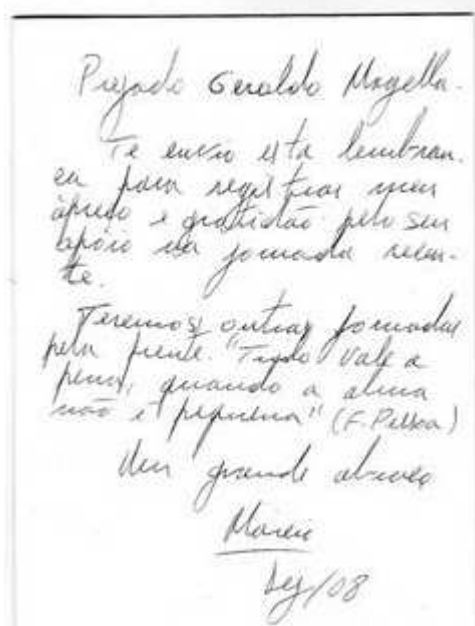 Prezado Geraldo Magella.
Te envio esta lembran-
ça para registrar meu
apreço e gratidão pelo seu
apoio na jornada recen-
te.
Teremos outras jornadas
pela frente. "Tudo vale a
pena, quando a alma
não é pequena" (F. Pessoa)
Um grande abraço
Dez/08